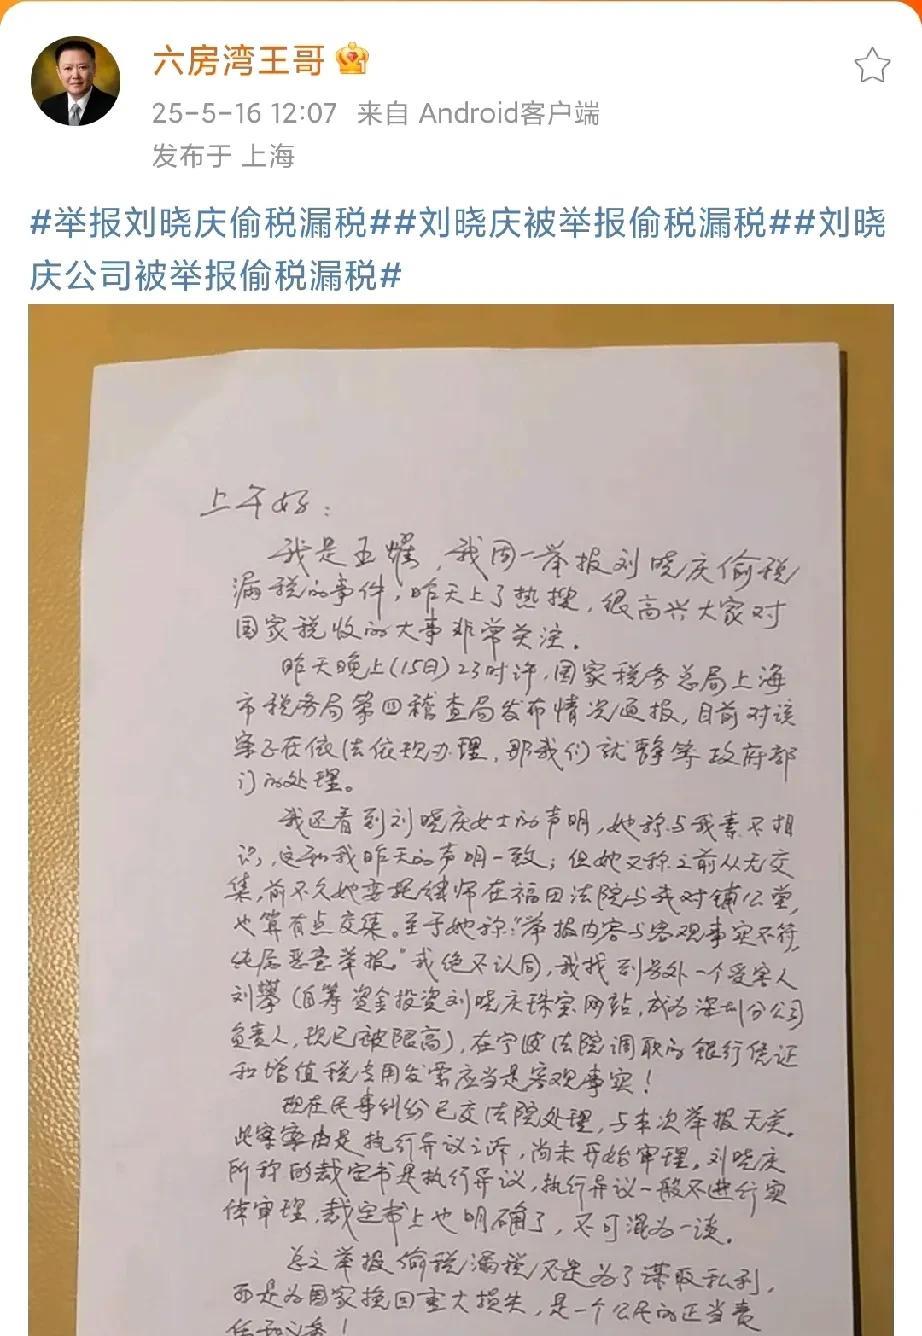 六房湾王哥
25-5-16 12:07 来自 Android客户端
发布于 上海
#举报刘晓庆偷税漏税##刘晓庆被举报偷税漏税##刘晓
庆公司被举报偷税漏税#
上午好：
我是王耀，我周一举报刘晓庆偷税
漏税的事件，昨天上了热搜，很高兴大家对
国家税收的大事非常关注。
昨天晚上(15日)23时许，国家税务总局上海
市税务局第四稽查局发布情况通报，目前对该
案正在依法依规办理，那我们就静等政府部
门的处理。
我还看到刘晓庆女士的声明，她称与我素不相
识，这和我昨天的声明一致；但她又称之前从无交
集，前不久她委托律师在福田法院与我对铺公堂，
也算有点交集。至于她称：“举报内容与客观事实不符，
纯属恶意举报。”我绝不认同，我找到另外一个受害人
刘攀(自筹资金投资刘晓庆珠宝网站，成为深圳分公司
负责人，现已被限高)，在宁波法院调取的银行凭证
和增值税专用发票应当是客观事实！
现在民事纠纷已交法院处理，与本次举报无关。
此案案由是执行异议之诉，尚未开始审理。刘晓庆
所称的裁定书是执行异议，执行异议一般不进行实
体审理，裁定书上也明确了，不可混为一谈。
总之举报偷税漏税不是为了谋取私利，
而是为国家挽回重大损失，是一个公民的正当责
任和义务！